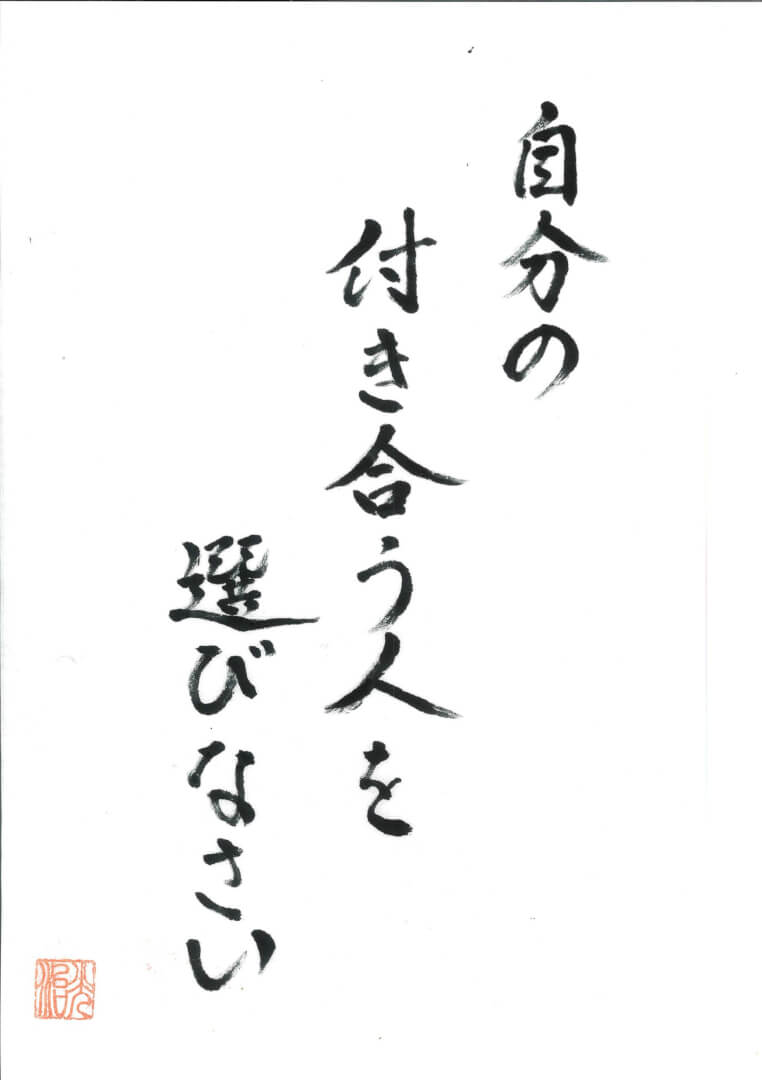 自分の
付き合う人を
選びなさい